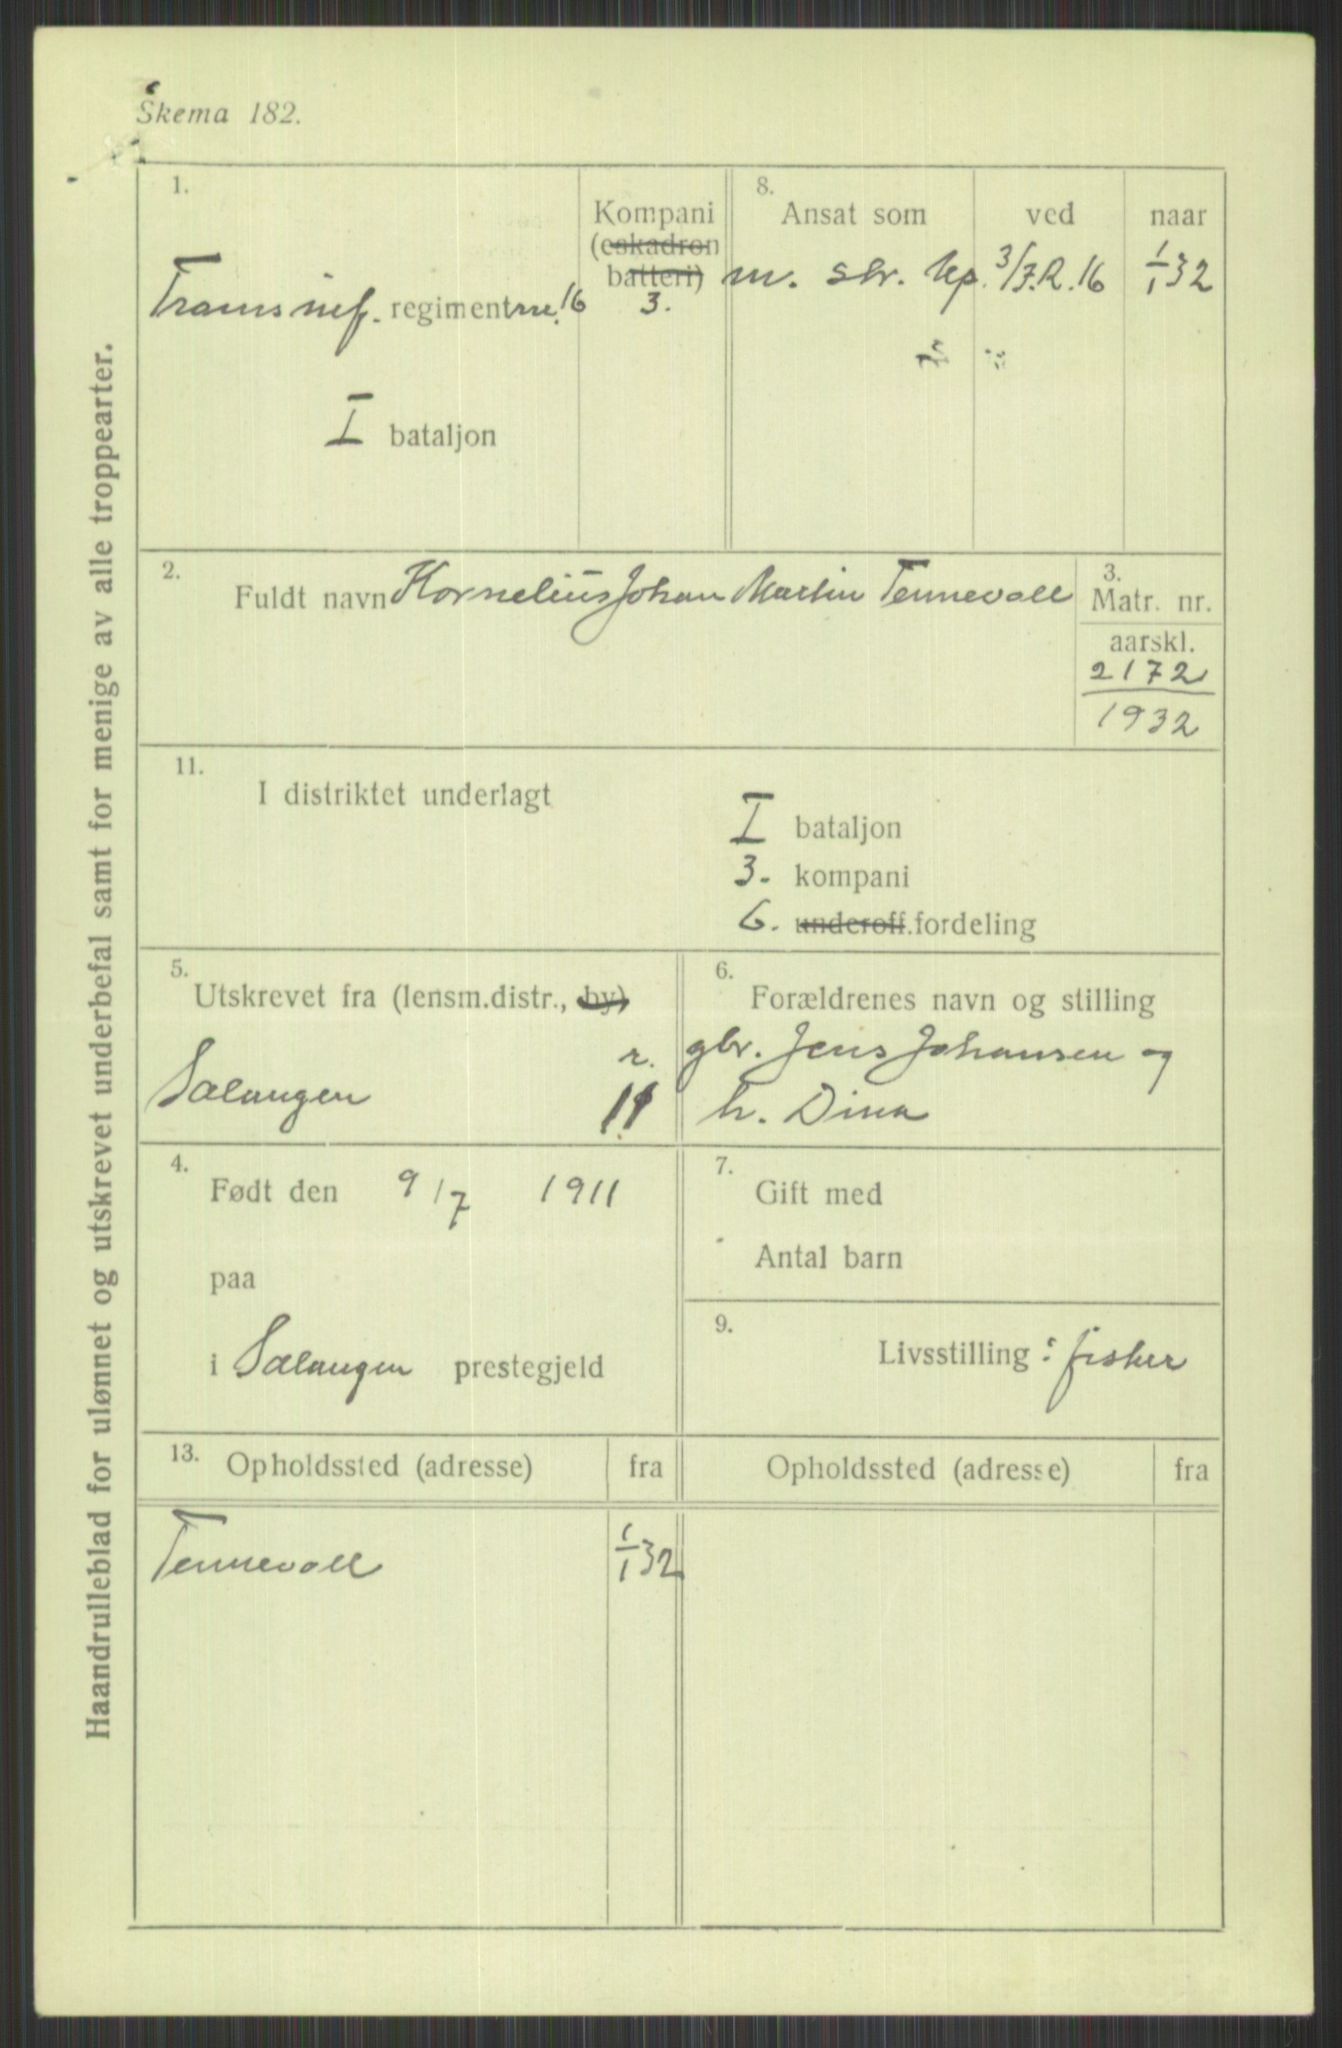 Skema 182.
Haandrulleblad for ulønnet og utskrevet underbefal samt for menige av alle troppearter.
1.
Troms inf. regiment nr. 16
I bataljon
Kompani
(eskadron
batteri)
3.
8.
Ansat som ved naar
m. str. kp. 3/I.R.16 1/1 32
2.
Fuldt navn Kornelius Johan Martin Tennevoll
3.
Matr. nr.
aarskl.
2172
1932
11.
I distriktet underlagt
I bataljon
3. kompani
6. underoff.fordeling
5.
Utskrevet fra (lensm.distr., by)
r.
Salangen 11
6.
Forældrenes navn og stilling
gbr. Jens Johansen og
h. Dina
4.
Født den 9/7 1911
paa
i Salangen prestegjeld
7.
Gift med
Antal barn
9.
Livsstilling : fisker
13.
Opholdssted (adresse) fra Opholdssted (adresse) fra
Tennevoll 1/1 32